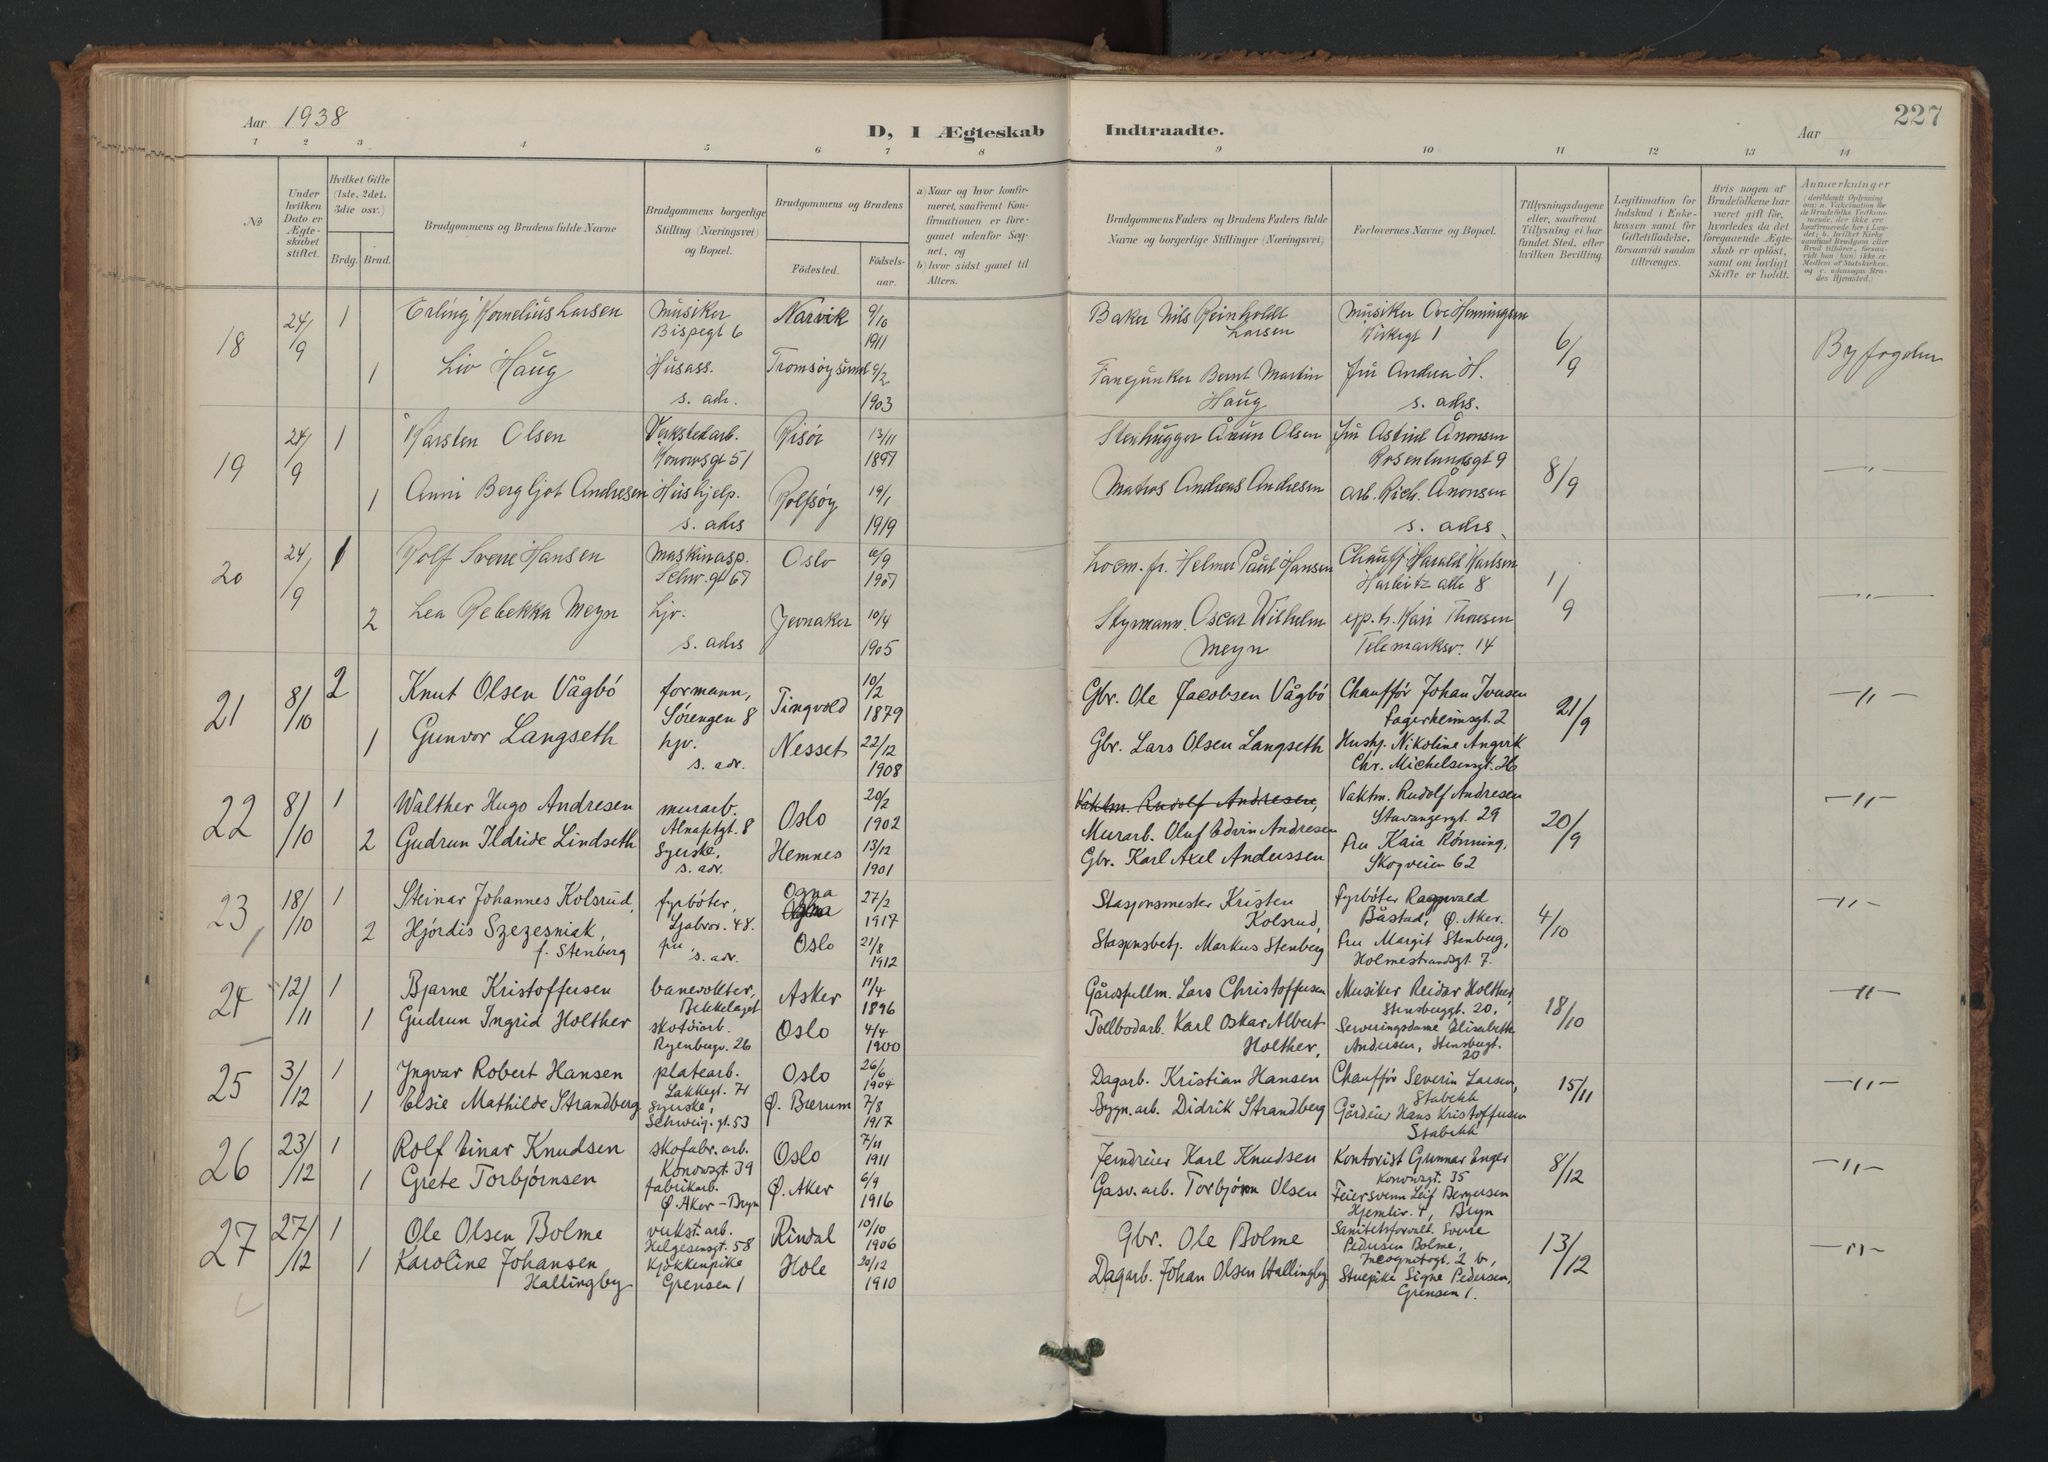 Aar 1938
D, I Ægteskab Indtraadte.
Aar
227
1 2 3 4 5 6 7 8 9 10 11 12 13 14
No
Under hvilken Dato er Ægteskabet stiftet.
Hvilket Gifte (1ste, 2det, 3die osv.)
Brdg. Brud.
Brudgommens og Brudens fulde Navne
Brudgommens borgerlige Stilling (Næringsvei) og Bopæl.
Brudgommens og Brudens
Fødested. Fødselsaar.
a) Naar og hvor konfirmeret, saafremt Konfirmationen er foregaaet udenfor Sognet, og
b) hvor sidst gaaet til Alters.
Brudgommens Faders og Brudens Faders fulde Navne og borgerlige Stillinger (Næringsvei)
Forlovernes Navne og Bopæl.
Tillysningsdagene eller, saafremt Tillysning ei har fundet Sted, efter hvilken Bevilling.
Legitimation for Indskud i Enkekassen samt for Giftetilladelse, forsaavidt saadan tiltrænges.
Hvis nogen af Brudefolkene har været gift før, hvorledes da det foregaaende Ægteskab er opløst, samt om lovligt Skifte er holdt.
Anmærkninger
18 24/9 1 Erling Kornelius Larsen Musiker Bispegt 6 Narvik 9/10 1911 Baker Nils Reinholdt Larsen Musiker Ove Henningsen Kirkegt 1 6/9 Byfogden
1 Liv Haug Husass. s. adr. Tromsøysund 9/2 1903 Fanejunker Bernt Martin Haug Fru Andrea H. s. adrs.
19 24/9 1 Karsten Olsen Verkstedarb. Konowsgt 51 Risør 13/11 1897 Stenhugger Ånun Olsen Fru Astrid Ånonsen Rosenlundsgt 9 8/9 -"-
1 Anni Bergljot Andresen Hushjelp. s. adrs Rolfsøy 19/1 1919 Matros Andreas Andresen arb. Rich. Ånonsen s. adrs.
20 24/9 1 Rolf Sverre Hansen Maskinasp. Schw. gt 67 Oslo 6/9 1907 Locm. fr. Helmer Paul Hansen Chauff Harald Karlsen Harbitz alle 8 1/9 -"-
2 Lea Rebekka Meyn hjv. s. adrs Jevnaker 10/4 1905 Styrmann. Oscar Wilhelm Meyn exp. h. Kari Thoresen Telemarksv. 14
21 8/10 2 Knut Olsen Vågbö formann, Sørengen 8 Tingvold 10/2 1879 Gbr. Ole Jacobsen Vågbö Chauffør Johan Iversen Fagerheimsgt. 2 21/9 -"-
1 Gunvor Langseth hjv. s. adr. Nesset 22/12 1908 Gbr. Lars Olsen Langseth Hushj. Nikoline Angvik Chr. Michelsensgt. 26
22 8/10 1 Walther Hugo Andresen murarb. Alnafetgt. 8 Oslo 20/2 1902 Vaktm. Rudolf Andresen, Murarb. Oluf Edvin Andresen Vaktm. Rudolf Andresen Stavangergt. 29 20/9 -"-
2 Gudrun Ildride Lindseth Syerske, s. adr. Hemnes 13/12 1901 Gbr. Karl Axel Anderssen fru Kaia Rønning, Skogveien 62
23 18/10 1 Steinar Johannes Kolsrud, fyrbøter, Ljabrov. 48. Ogna 27/2 1917 Stasjonsmester Kristen Kolsrud, Fyrbøter Ragnvald Båstad, Ø. Aker. 4/10 -"-
2 Hjórdis Szezesniak, f. Stenberg fru, s. adr. Oslo 21/8 1912 Stasjonsbetj. Markus Stenberg fru Margit Stenberg, Holmestrandsgt. 7.
24 12/11 1 Bjarne Kristoffersen banevokter, Bekkelaget Asker 11/4 1896 Gårdsfullm. Lars Christoffersen Musiker Reidar Holther, Stensberggt. 20, 18/10 -"-
1 Gudrun Ingrid Holther skotöiarb. Ryenbergv. 26 Oslo 4/4 1900 Tollbodarb. Karl Oskar Albert Holther, Serveringsdame Elisabeth Andersen, Stensbergt. 20
25 3/12 1 Yngvar Robert Hansen platearb. Lakkegt. 71 Oslo 26/6 1904 Dagarb. Kristian Hansen Chauffør Severin Larsen, Stabekk 15/11 -"-
1 Elsie Mathilde Strandberg Syerske, Schweig. gt. 53 Ø. Bærum 7/8 1917 Bygn. arb. Didrik Strandberg Gårdeier Hans Kristoffersen Stabekk
26 23/12 1 Rolf Einar Knudsen skofabr. arb. Konowsgt. 39 Oslo 7/11 1911 Jerndreier Karl Knudsen Kontorist Gunnar Enger Konowsgt. 35 8/12 -"-
1 Grete Torbjørnsen fabrikarb. Ø. Aker - Bryn Ø. Aker 6/9 1916 Gasv. arb. Torbjørn Olsen Feiersvenn Leif Bergersen Hjemliv. 4, Bryn
27 27/12 1 Ole Olsen Bolme verkst. arb. Helgesensgt. 58 Rindal 10/10 1906 Gbr. Ole Bolme Sanitetsforvalt. Sverre Pedersen Bolme, Incognitogt. 2 b, 13/12 -"-
1 Karoline Johansen Hallingby Kjøkkenpike Grensen 1 Hole 30/12 1910 Dagarb. Johan Olsen Hallingby Stuepike Signe Pedersen, Grensen 1.